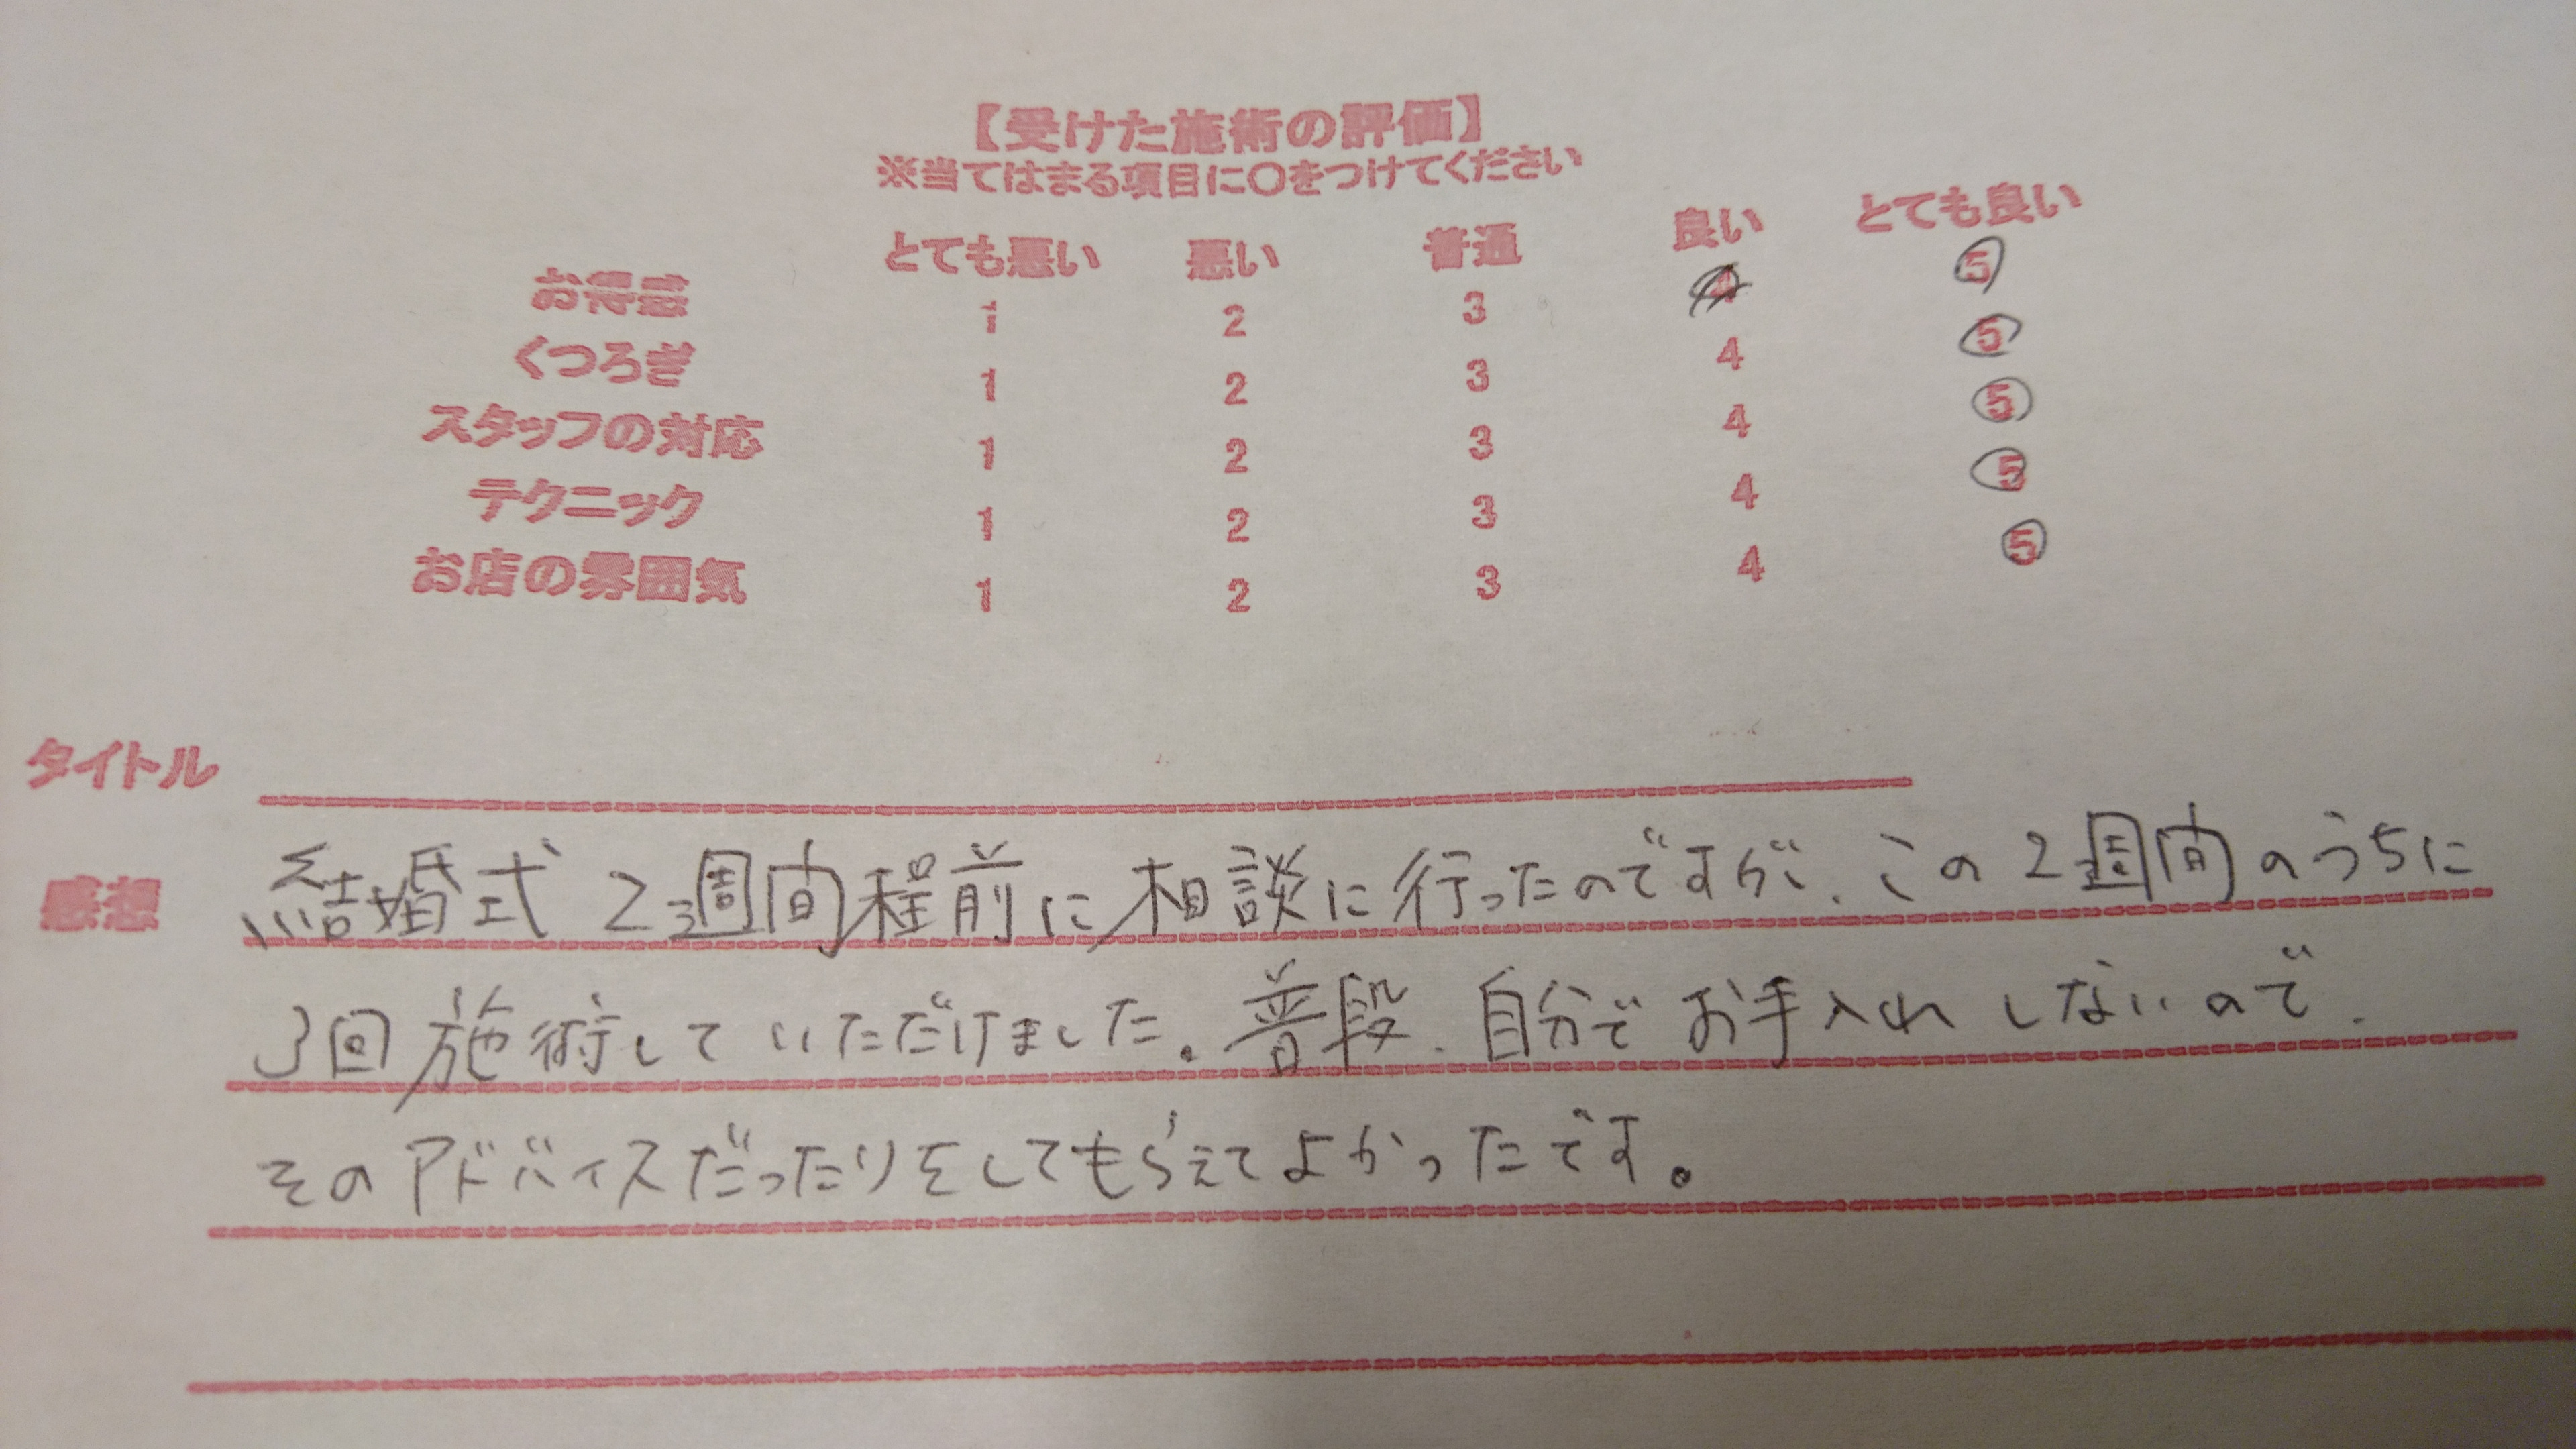 【受けた施術の評価】
※当てはまる項目に〇をつけてください
とても悪い 悪い 普通 良い とても良い
お得感 1 2 3 4 5
くつろぎ 1 2 3 4 5
スタッフの対応 1 2 3 4 5
テクニック 1 2 3 4 5
お店の雰囲気 1 2 3 4 5
タイトル
感想 結婚式2週間程前に相談に行ったのですが、この2週間のうちに
3回施術していただけました。普段、自分でお手入れしないので、
そのアドバイスだったりをしてもらえてよかったです。